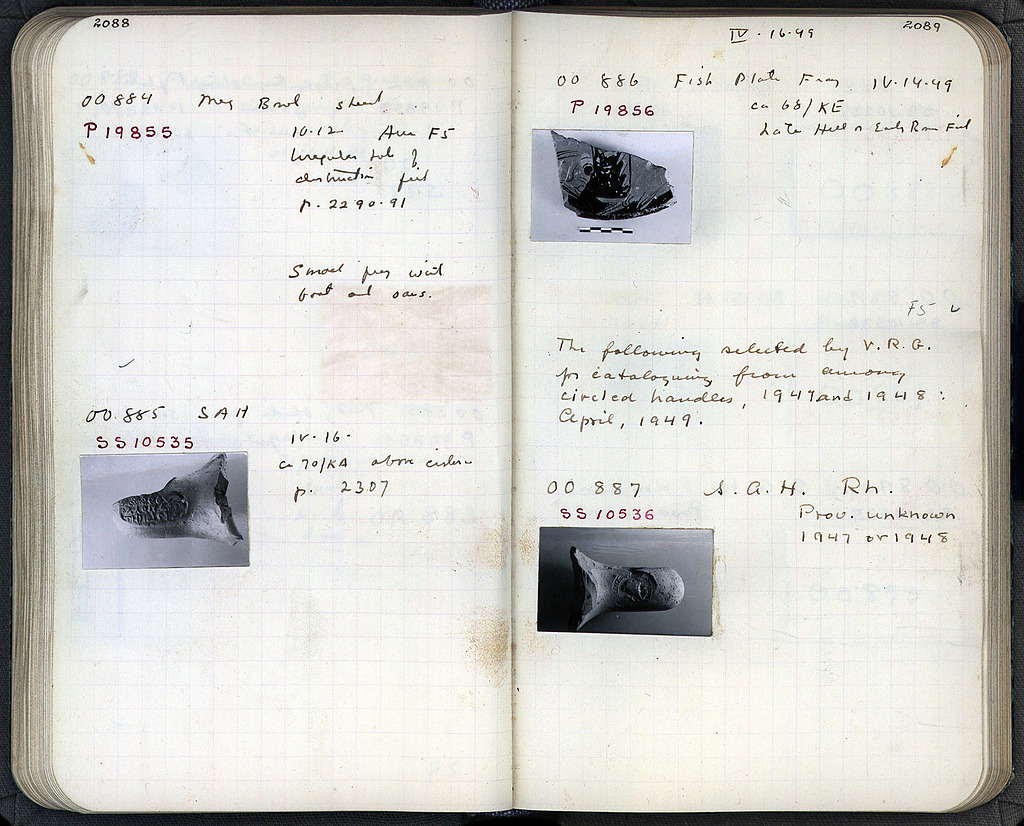 2088
OO 884 Meg Bowl sherd
P 19855
10-12 Area F5
Irregular sub of
destruction fill
p. 2290-91
Small frag with
boat and oars.
OO 885 SAH
SS 10535
IV-16-
ca 70/KA above cistern
p. 2307
2089
IV-16-49
OO 886 Fish Plate Frag IV-14-49
P 19856
ca 68/KE
Late Hell or Early Rom Fill
F5
The following selected by V.R.G.
for cataloguing from among
circled handles, 1947 and 1948:
April, 1949.
OO 887 S.A.H. Rh.
SS 10536
Prov. unknown
1947 or 1948